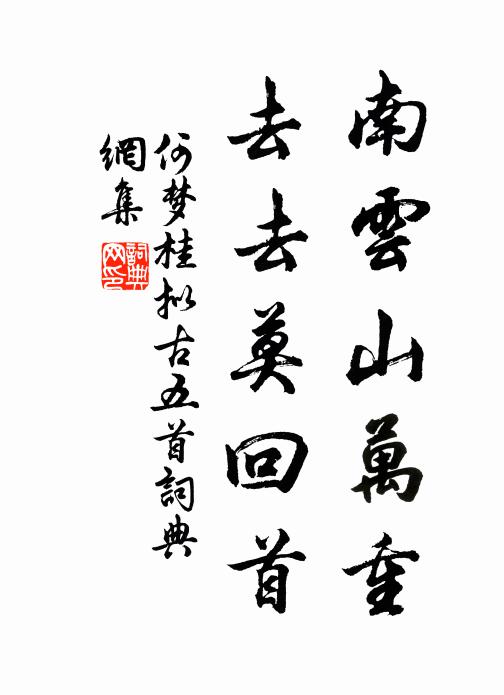 南雲山萬重
去去莫回首
何梦桂拟古五首詞典
網集
詞典
网印